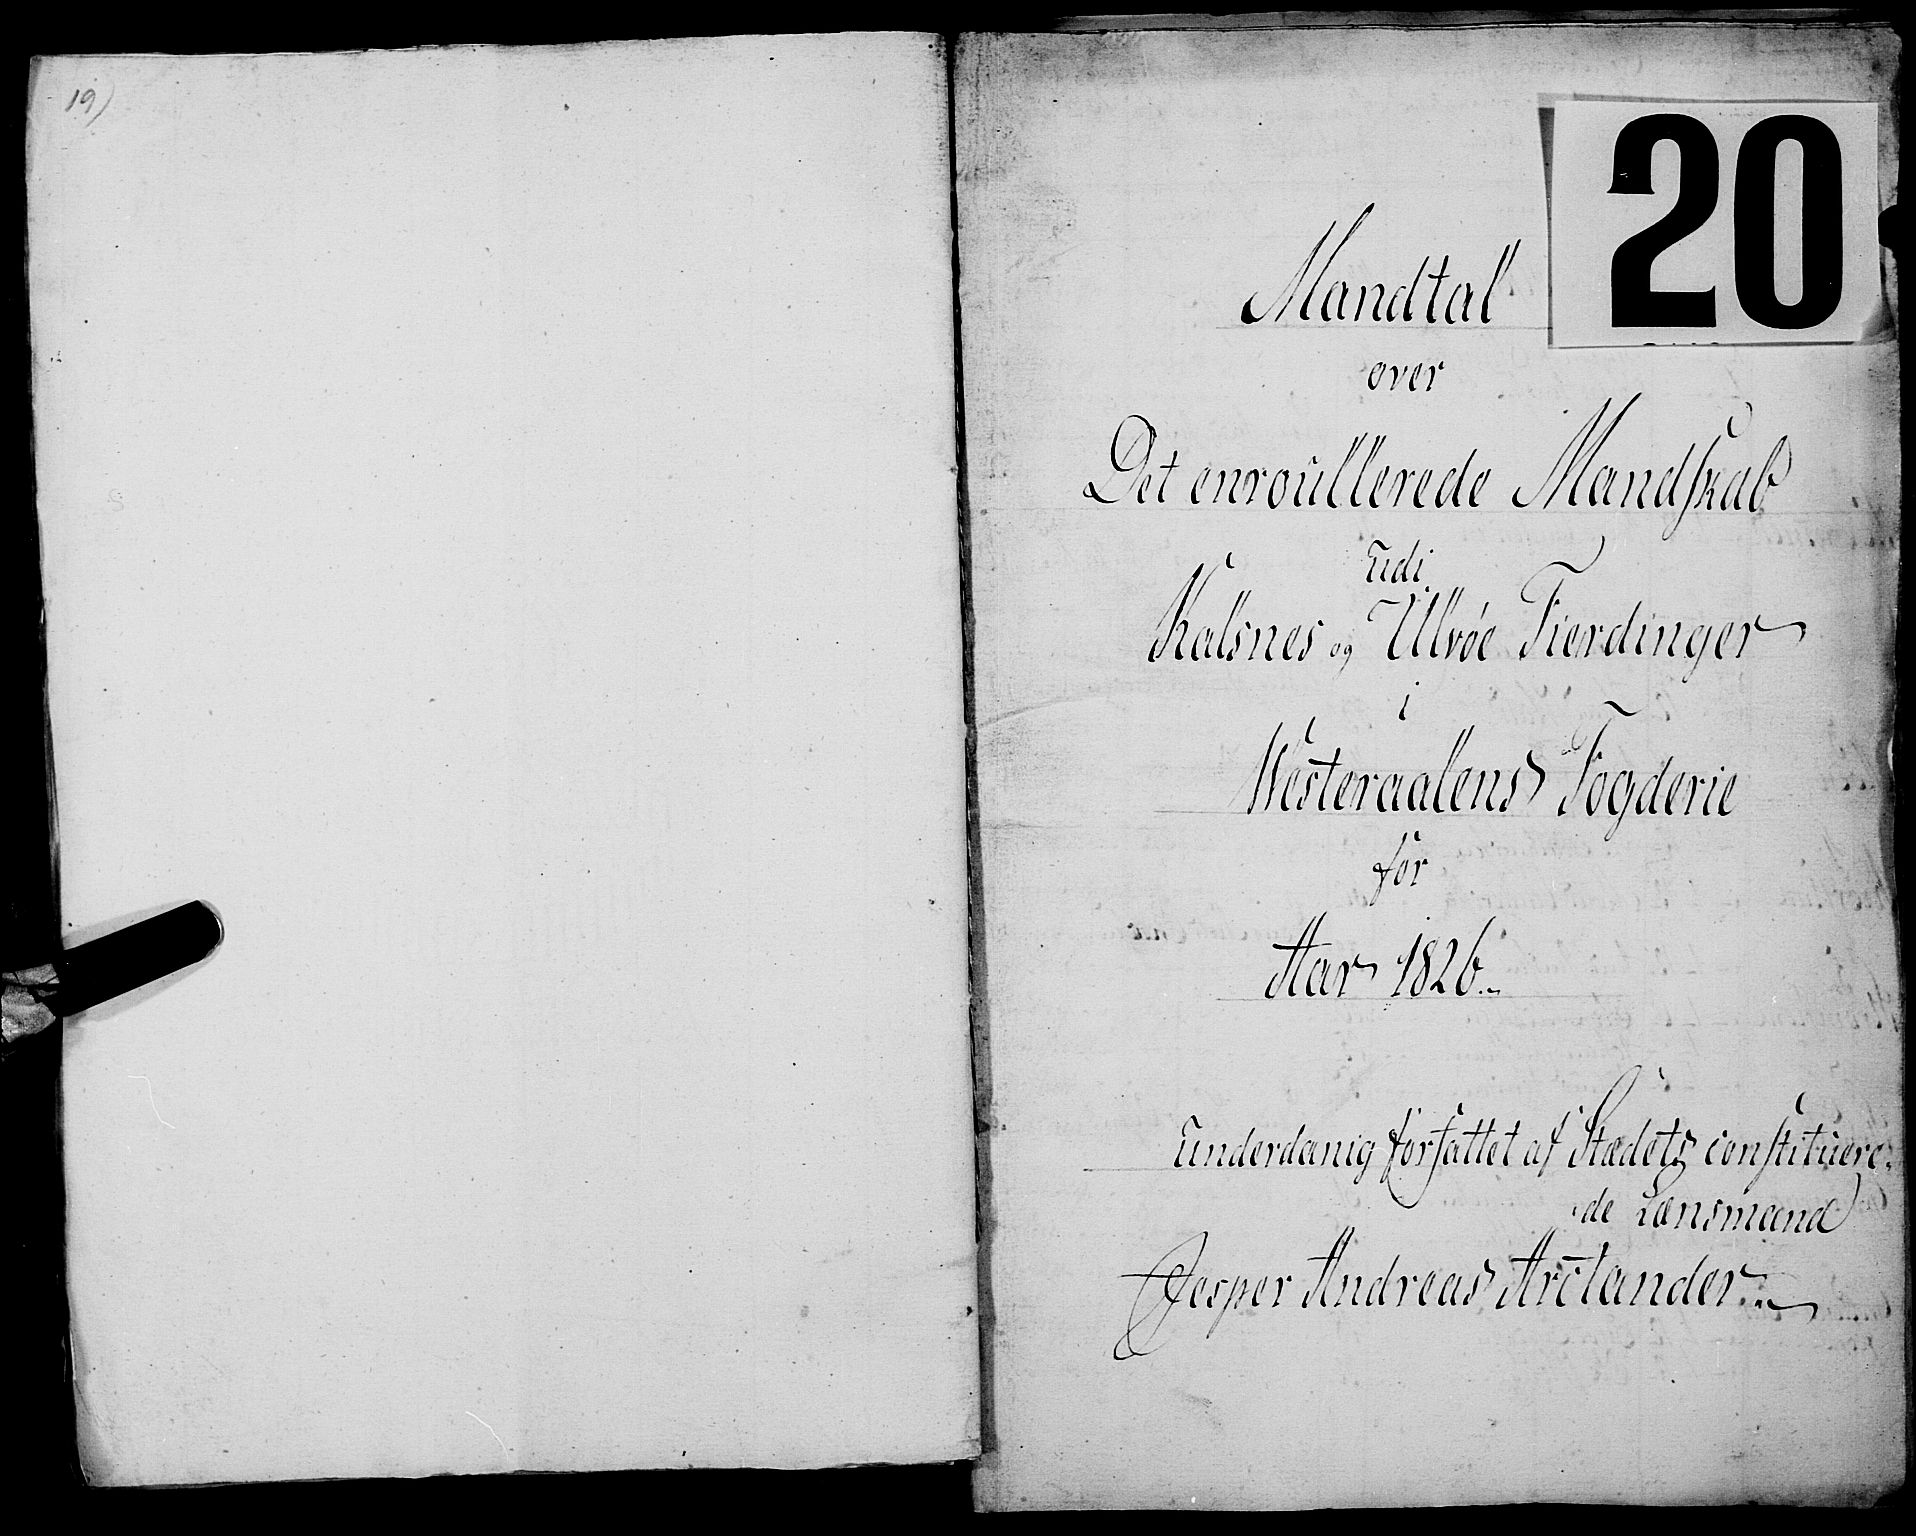 19)
20
Mandtal
over
Det enroullerede Mandskab
udi
Kalsnes og Ulvöe Fierdinger
i
Westeraalens Fogderie
for
Aar 1826.
underdanig forfattet af Stædets constituere-
de Lænsmand
Jesper Andreas Arctander